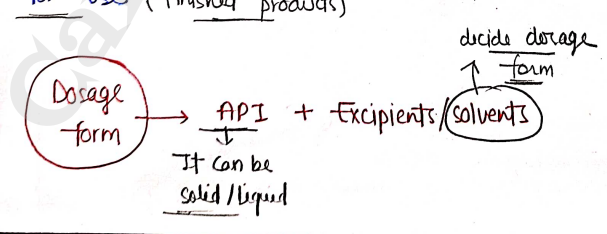 use (finished products)
decide dosage
form
Dosage
form → API + Excipients/solvents
It can be
solid/liquid